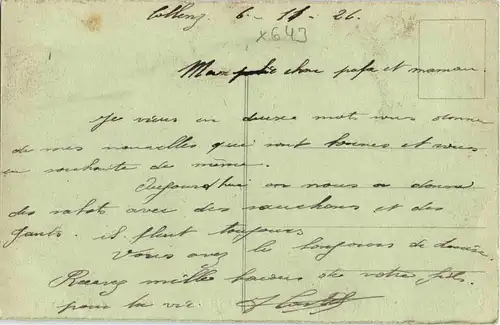 Coblenz 6-11-26.
x643
Mon cher papa et maman.
Je viens en deux mots vous donner
de mes nouvelles qui sont bonnes et vous
en souhaite de même.
Aujourd'hui on nous a donné
des sabots avec des chauchons et des
gants. il pleut toujours.
Vous avez le bonjour de
Recevez mille baisers de votre fils
pour la vie.